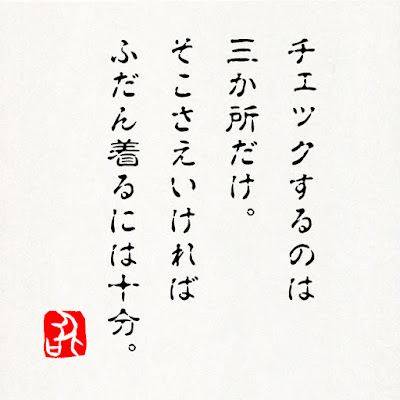 チェックするのは
三か所だけ。
そこさえいければ
ふだん着るには十分。